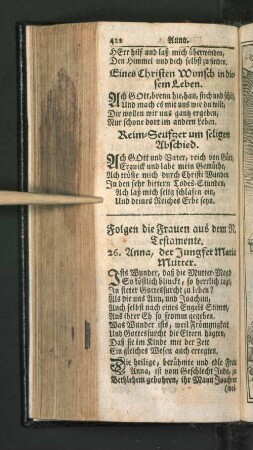 422 Anna.
HErr hilf und laß mich überwinden,
Den Himmel und dich selbst zu finden.
Eines Christen Wunsch in die-
sem Leben.
Ach GOtt, brenn hie, hau, stich und
Und mach es mit uns wie du wilt,
Dir wollen wir uns gantz ergeben,
Nur schone dort im andern Leben.
Reim-Seufzer um seligen
Abschied.
Ach GOtt und Vater, reich von Güt,
Erquick und labe mein Gemüthe,
Ach tröste mich durch Christi Wunden
In den sehr bittern Todes-Stunden,
Ach laß mich selig schlafen ein,
Und deines Reiches Erbe seyn.
Folgen die Frauen aus dem N.
Testamente.
26. Anna, der Jungfer Maria
Mutter.
Ists Wunder, daß die Mutter-Magd
So köstlich blinckt, so herrlich tagt,
In steter Gottesfurcht zu leben?
Als die uns Ann, und Joachim,
Auch selbst nach eines Engels Stimm,
Aus ihrer Eh so fromm gegeben.
Was Wunder ists, weil Frömmigkeit
Und Gottesfurcht die Eltern hägten,
Daß sie im Kinde mit der Zeit
Ein gleiches Wesen auch erregten.
Die heilige, berühmte und edle Frau
Anna, ist vom Geschlecht Juda, zu
Bethlehem gebohren, ihr Mann Joachim